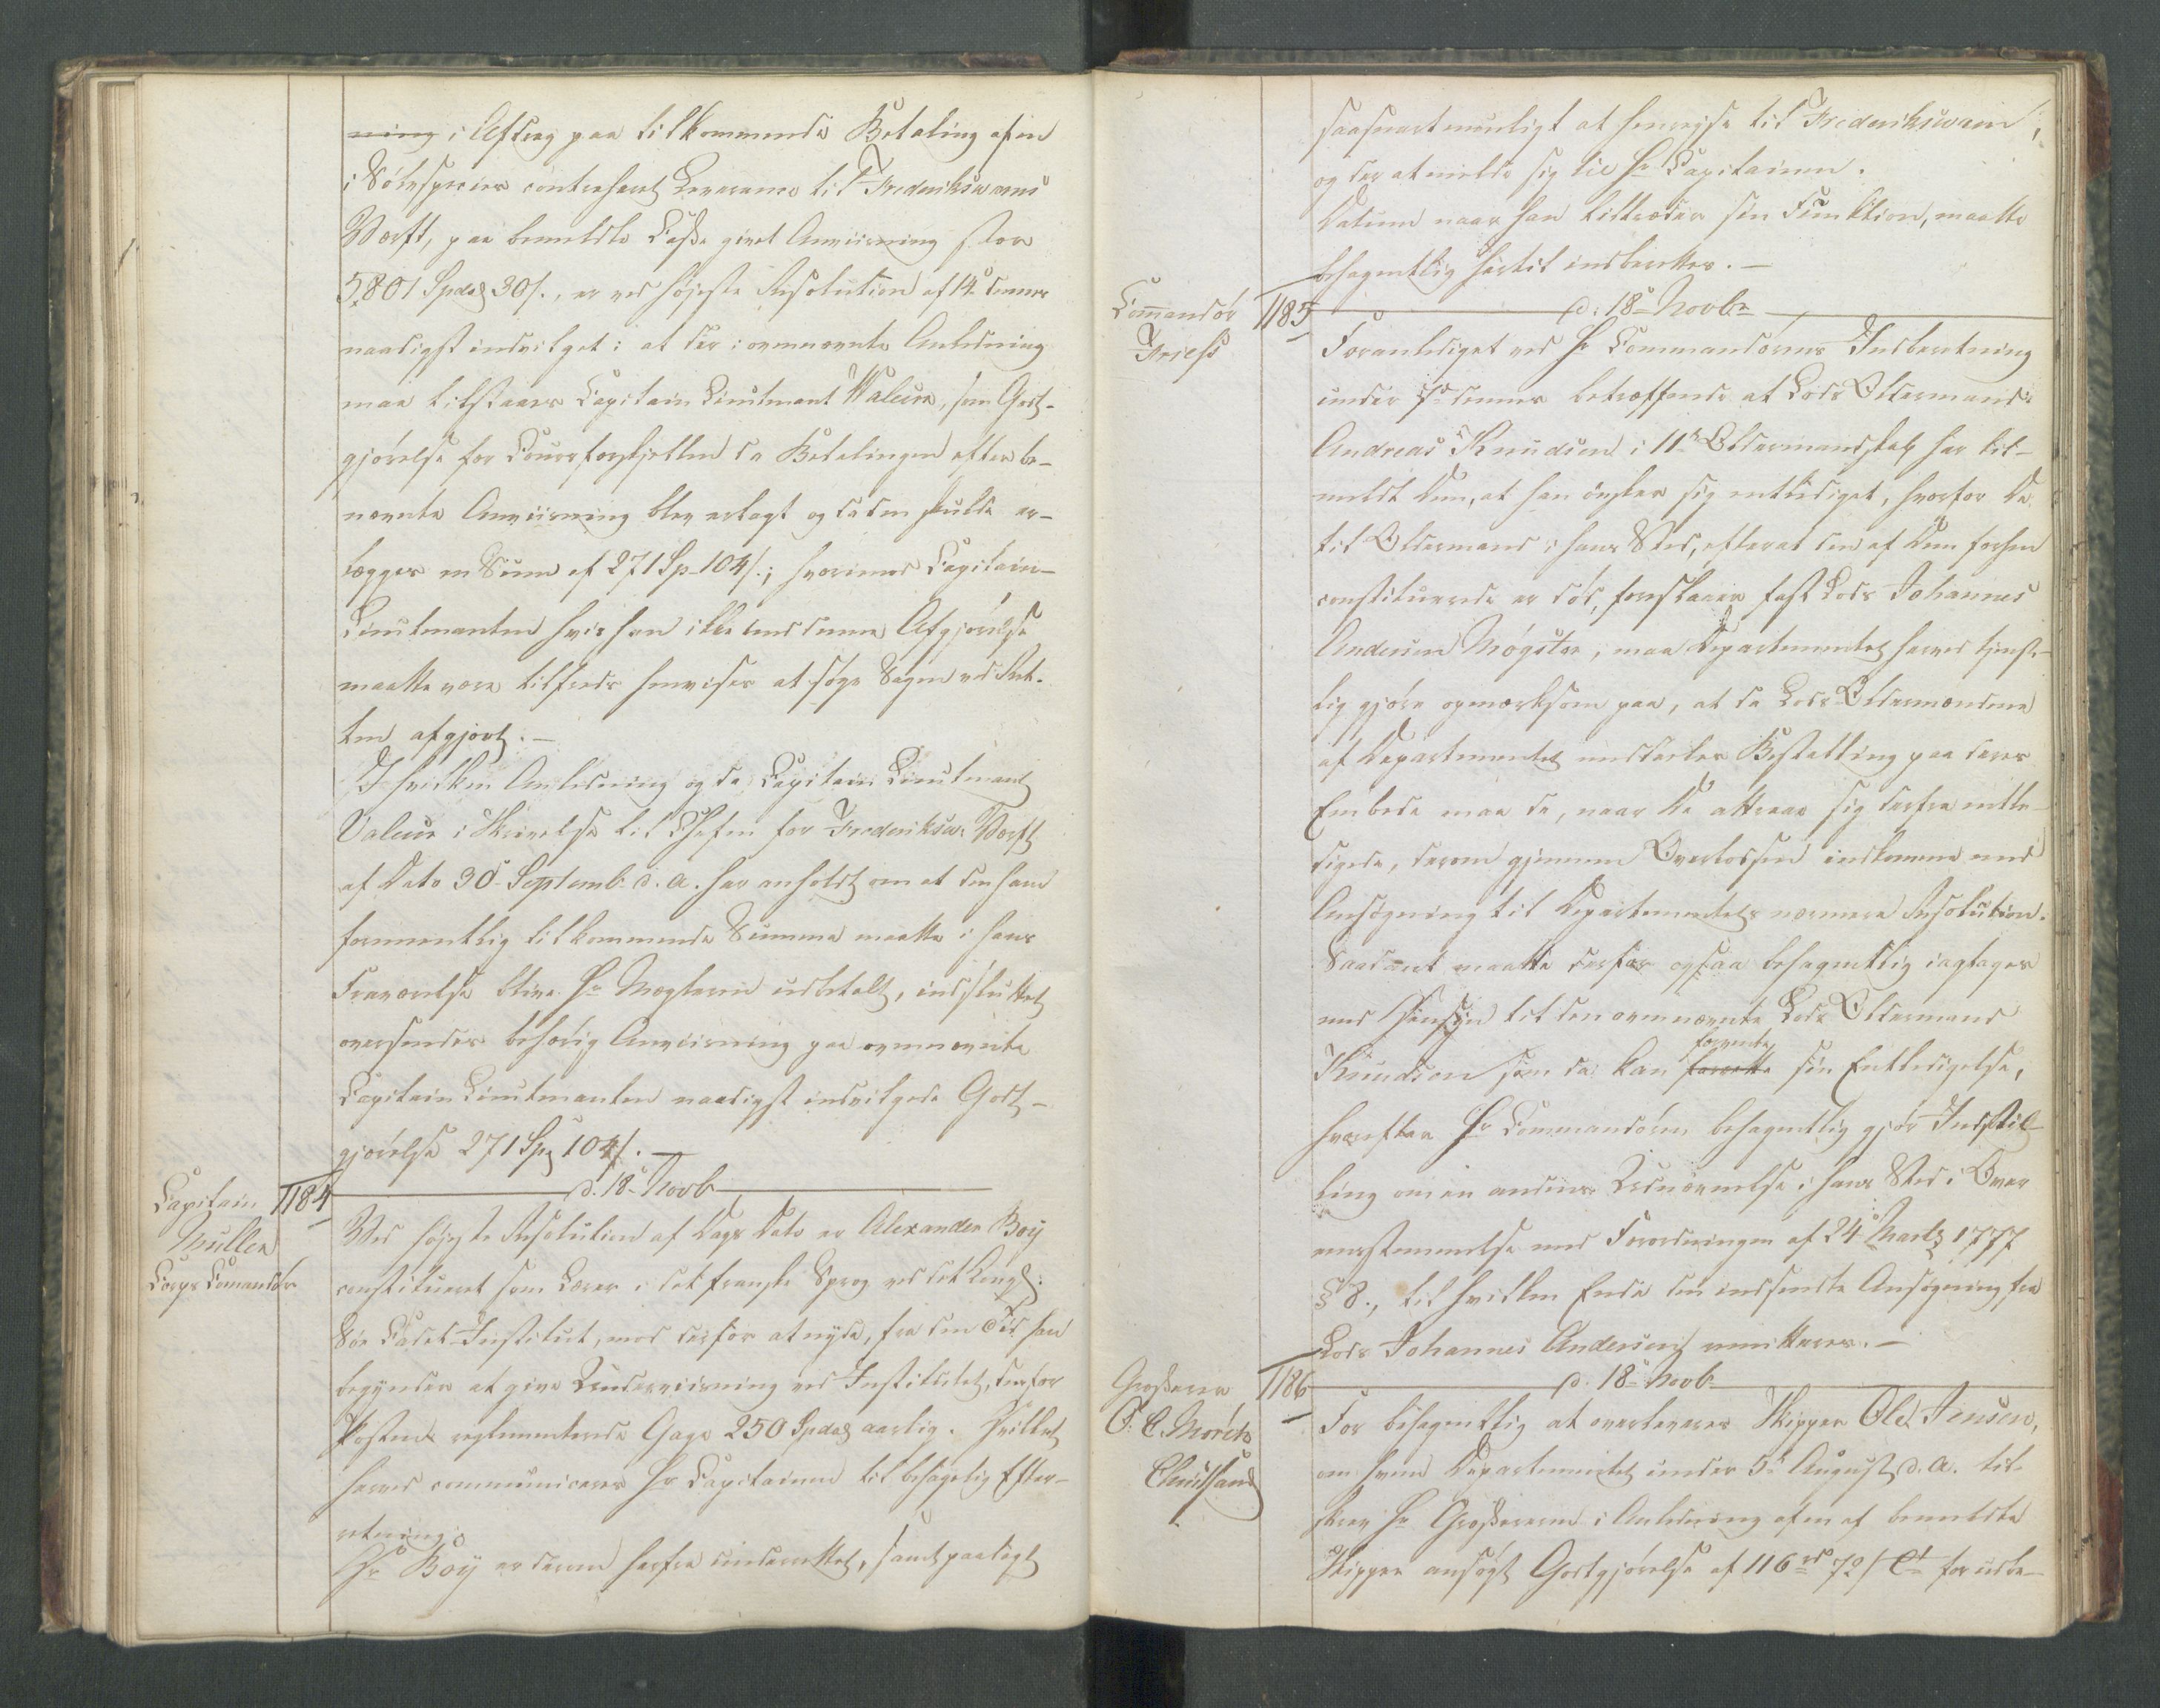 ning i Afdrag paa tilkommende Betaling af en
i Sølvspecier contraheret Leverance til Frederikswærns
Værft, paa bemeldte Casse givet Anviisning stor
5,801 Spd 30 s., er ved højeste Resolution af 14de dennes
naadigst indvilget: at der i ovennævnte Anledning
maa tilstaaes Capitain Lieutenant Valeur, som Godt-
gjørelse for Coursforskjellen da Betalingen efter be-
nævnte Anviisning blev erlagt og da den skulde er-
lægges en Sum af 271 Sp 104 s.; hvorimod Capitain-
Lieutenanten hvis han ikke med denne Afgjørelse
maatte være tilfreds henvises at søge Sagen ved Ret-
ten afgjort. —
I hvilken Anledning og da Capitain Lieutenant
Valeur i Skrivelse til Chefen for Fredriksv: Værft
af Dato 30te Septemb. d. A. har anholdt om at den ham
formentlig tilkommende Summa maatte i hans
Fraværelse blive Hr Mægleren udbetalt, indsluttet
oversendes behørig Anviisning paa ovennævnte
Capitain Lieutenanten naadigst indvilgede Godt-
gjørelse 271 Sp 104 s. —
Capitain
Müller
Corps Comandør
1184
d. 18de Novb
Ved højeste Resolution af Dags Dato er Alexander Boÿ
constitueret som Lærer i det franske Sprog ved det Kongl:
Søe Cadet-Institut, mod derfor at nyde, fra den Tid han
begynder at give Underviisning ved Institutet, den for
Posten reglementerede Gage 250 Spd aarlig. Hvilket
herved communiceres Hr Capitainen til behagelig Efter-
retning.
Hr Boÿ er derom herfra underrettet, samt paalagt
saasnart muligt at henrejse til Frederikswærn,
og der at melde sig til Hr Capitainen.
Datum naar han tiltræder sin Funktion, maatte
behagentlig hertil indberettes. —
Commandør
Griess
1185
d: 18de Novbr
Foranlediget ved Hr Commandørens Indberetning
under 7de dennes betræffende at Lods Oldermand
Andreas Knudsen i 11te Oldermandskab har til-
meldt Dem, at han ønsker sig entlediget, hvorfor De
til Oldermand i hans Sted, efterat den af Dem forhen
constituerede er død, foreslaaer fast Lods Johannes
Andersen Møgster, maa Departementet herved tjenst-
lig gjøre opmærksom paa, at da Lods Oldermændene
af Departementet meddeeles Bestalling paa deres
Embede maa de, naar De attraae sig derfra entle-
digede, derom gjennem Overlodsen indkomme med
Ansøgning til Departementets nærmere Resolution.
Saadant maatte derfor ogsaa behagentlig iagtages
med Hensyn til den ovennævnte Lods Oldermand
Knudsen som da kan forrette forvente sin Entledigelse,
hvorefter Hr Commandøren behagentlig gjør Indstil-
ling om en andens Udnævnelse i hans Sted i Over
eensstemmelse med Forordningen af 24de Marts 1777
§ 8., til hvilken Ende den indsendte Ansøgning fra
Lods Johannes Andersen remitteres. —
Grosserer
O. C. Mørch
Chrstsand
1186
d. 18de Novb
For behagentlig at overleveres Skipper Ole Jensen,
om hvem Departementet under 5te August d. A. til-
skrev Hr Grossereren i Anledning af en af bemeldte
Skipper ansøgt Godtgjørelse af 116 rd 72 s Ct for udbe-